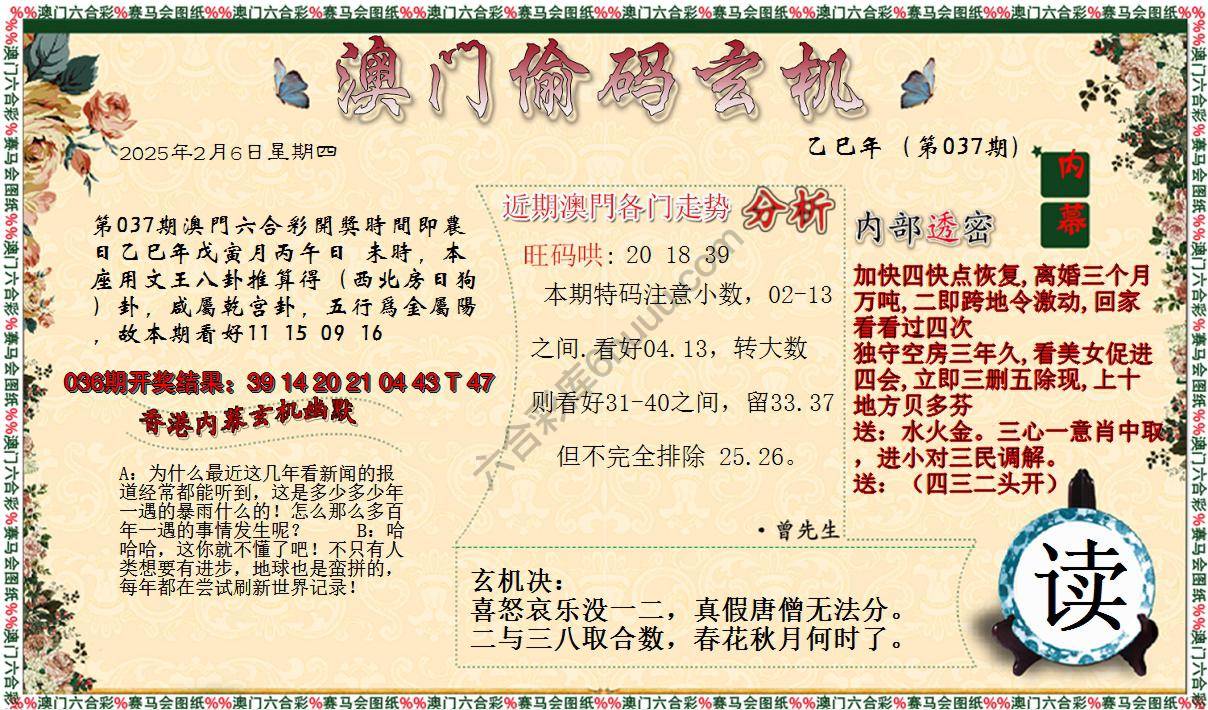 %%澳门六合彩%赛马会图纸%%澳门六合彩%赛马会图纸%%澳门六合彩%赛马会图纸%%澳门六合彩%赛马会图纸%%澳门六合彩%赛马会图纸%%澳门六合彩%赛马会图纸%%
澳门偷码玄机
2025年2月6日星期四
乙巳年（第037期）
内幕
第037期澳門六合彩開獎時間即農
日乙巳年戊寅月丙午日 未時，本
座用文王八卦推算得（西北房日狗
）卦，咸屬乾宫卦，五行爲金屬陽
，故本期看好11 15 09 16
036期开奖结果：39 14 20 21 04 43 T 47
香港内幕玄机幽默
A：为什么最近这几年看新闻的报
道经常都能听到，这是多少多少年
一遇的暴雨什么的！怎么那么多百
年一遇的事情发生呢？ B：哈
哈哈，这你就不懂了吧！不只有人
类想要有进步，地球也是蛮拼的，
每年都在尝试刷新世界记录！
近期澳門各门走势 分析
旺码哄: 20 18 39
本期特码注意小数，02-13
之间.看好04.13，转大数
则看好31-40之间，留33.37
但不完全排除 25.26。
·曾先生
内部透密
加快四快点恢复,离婚三个月
万吨,二即跨地令激动,回家
看看过四次
独守空房三年久,看美女促进
四会,立即三删五除现,上十
地方贝多芬
送：水火金。三心一意肖中取
，进小对三民调解。
送：（四三二头开）
玄机决：
喜怒哀乐没一二，真假唐僧无法分。
二与三八取合数，春花秋月何时了。
读